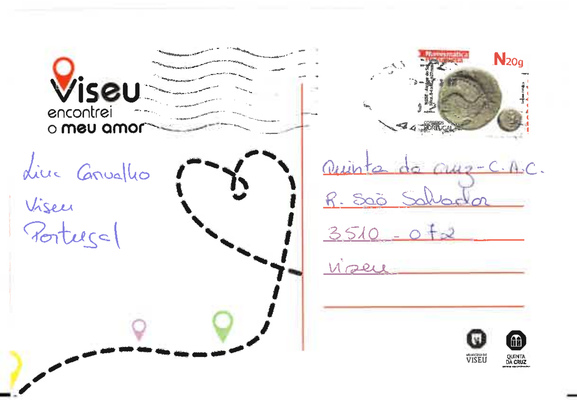 Viseu
encontrei
o meu amor
Numismática
N20g
Carvalho
Viseu
Portugal
Quinta da Cruz - C.A.C.
R. São Salvador
3510 - 072
Viseu
VISEU
QUINTA
DA CRUZ